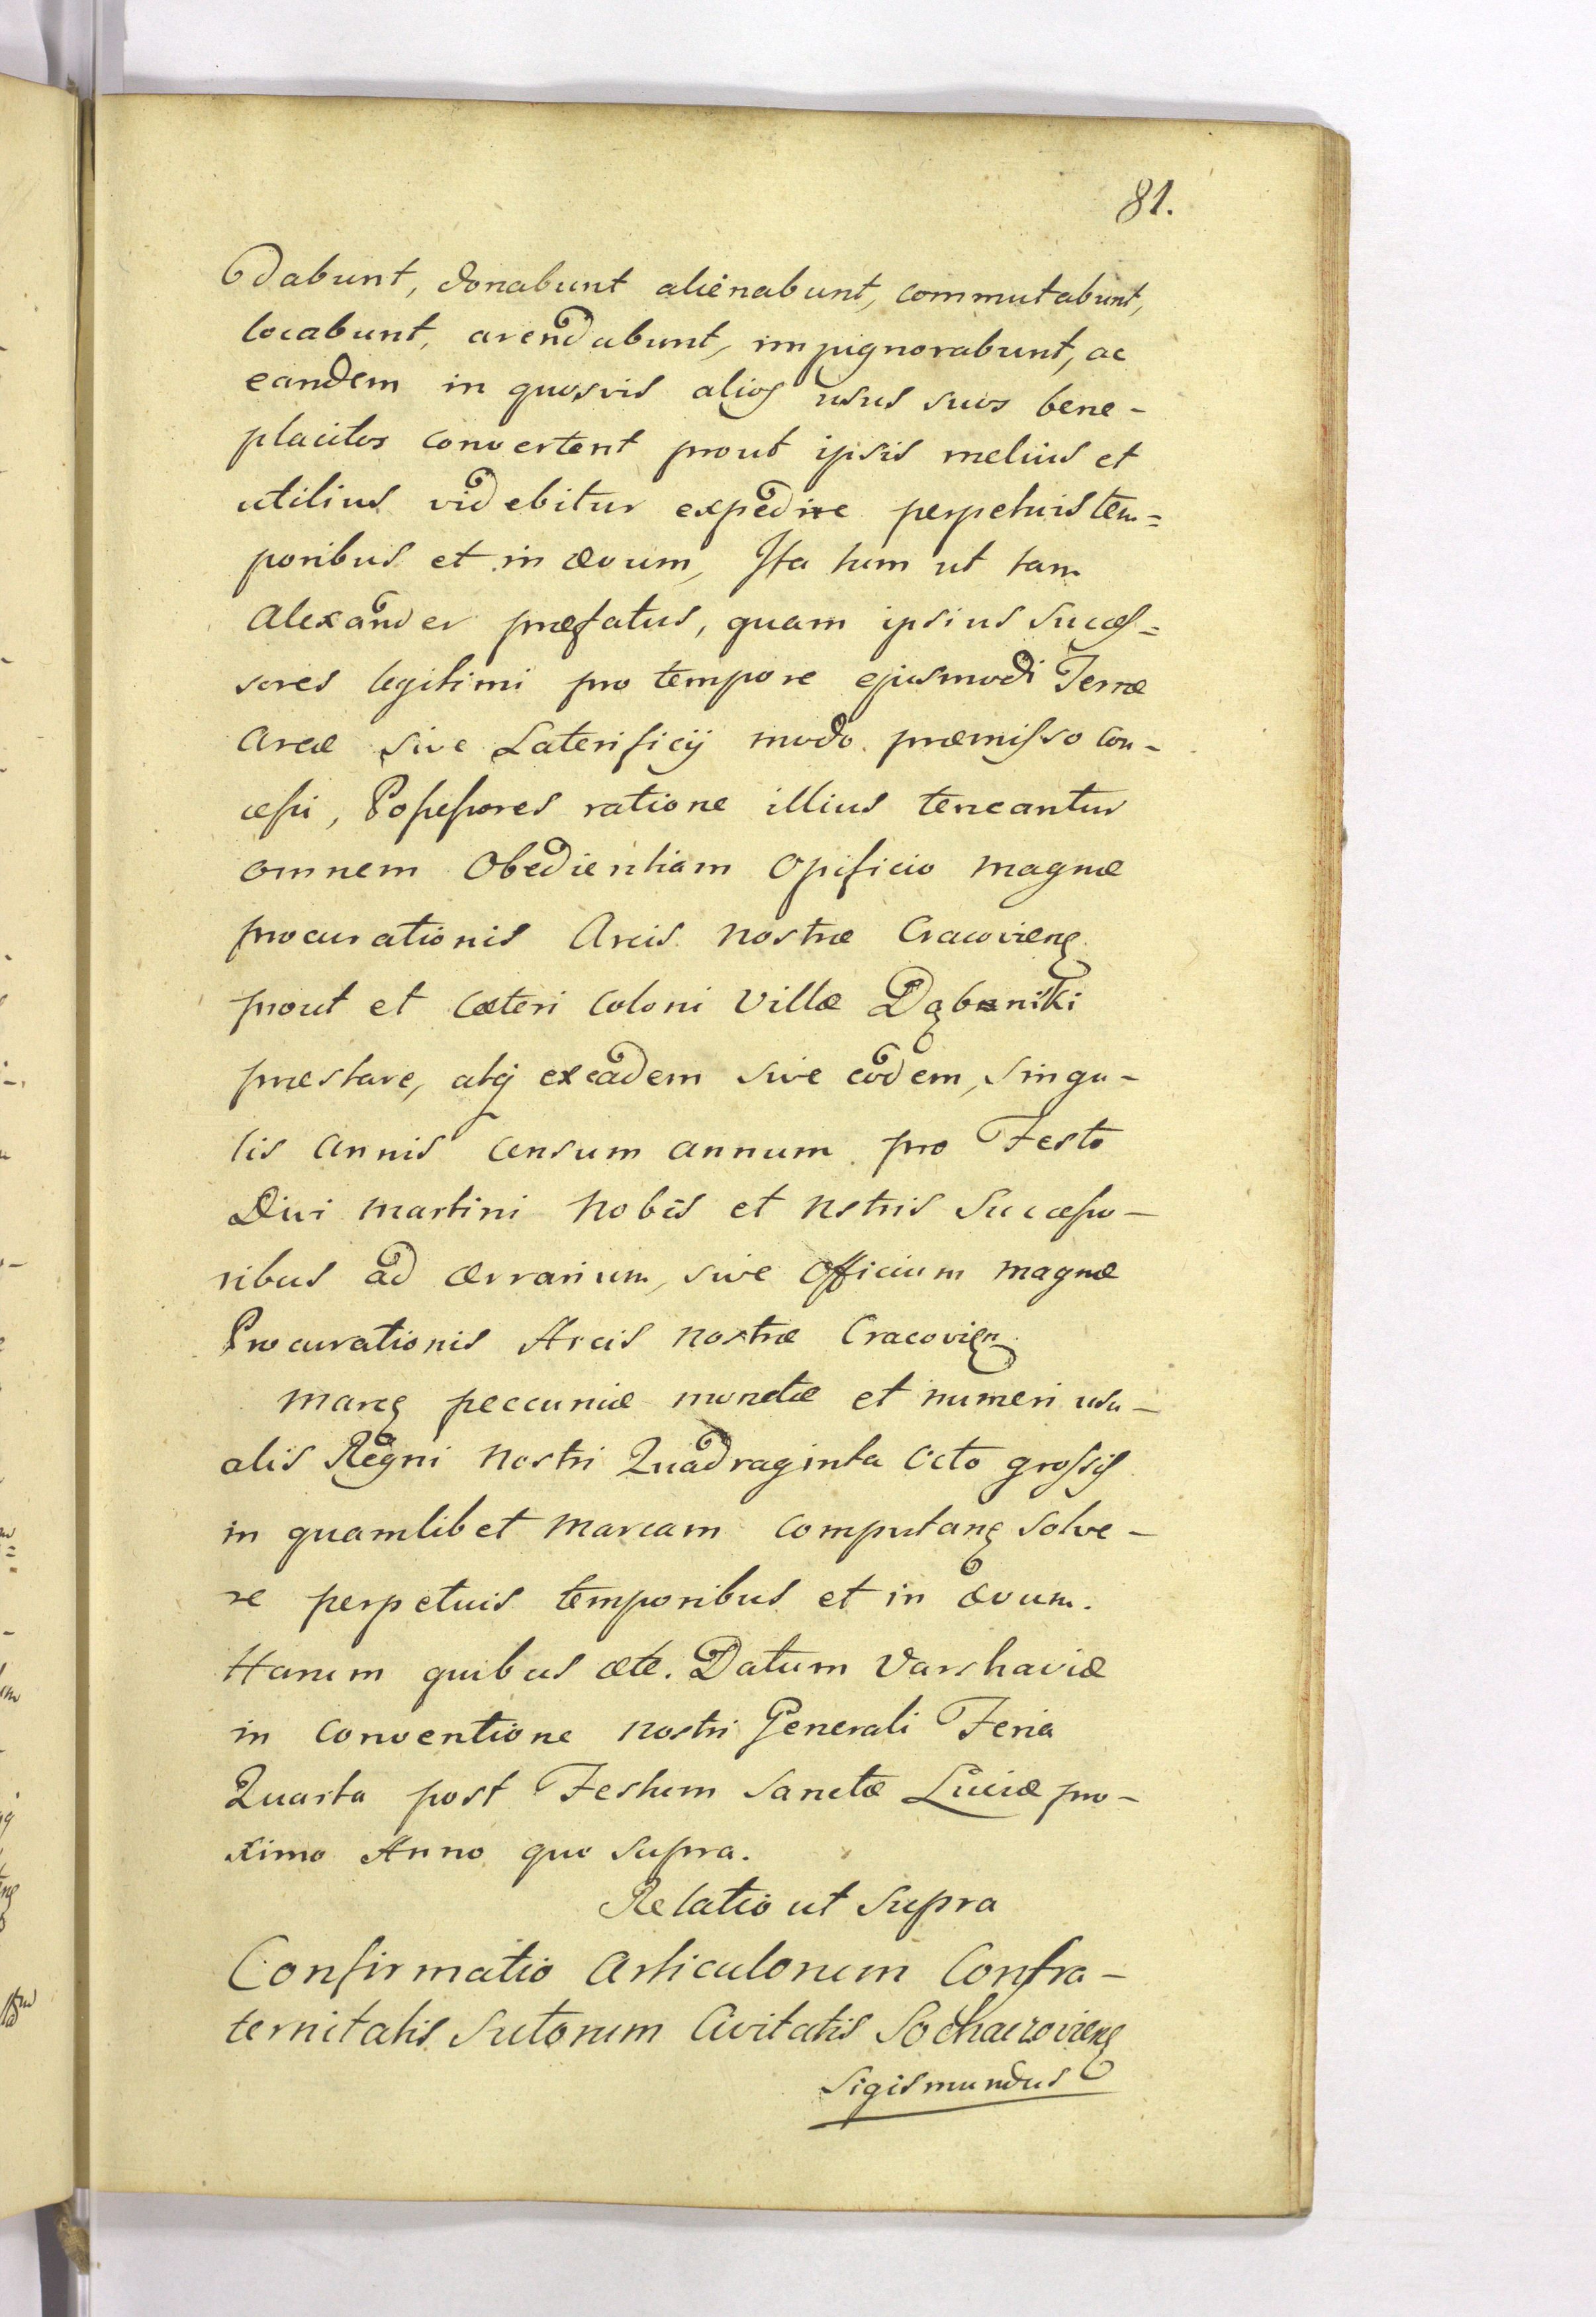 81.
dabunt, donabunt alienabunt, commutabunt,
locabunt, arendabunt, impignorabunt, ac
eandem in quosvis alios usus suos bene-
placitos convertent prout ipsis melius et
utilius videbitur expedire perpetuis tem=
poribus et in ævum, Ita tum ut tam
Alexander præfatus, quam ipsius Succes=
sores legitimi pro tempore ejusmodi Terræ
Areæ sive Laterificij modo præmisso con-
cessi, Possessores ratione illius teneantur
omnem Obedientiam Opificio magnæ
procurationis Arcis nostræ Cracovieng
prout et Cæteri Coloni Villæ Dąbniki
præstare, atq exeadem sive eodem, singu-
lis annis censum annum pro Festo
Divi Martini Nobis et Nstris Successo-
ribus ad Ærrarium, sive Officium magnæ
Procurationis Arcis nostræ Cracovien
Marcę peccuniæ monetæ et numeri usu-
alis Regni Nostri Quadraginta Octo grossis
in quamlibet Marcam computang solve-
re perpetuis temporibus et in ævum.
Harum quibus etc. Datum Varshaviæ
in Conventione nostri Generali Feria
Quarta post Festum Sanctæ Luciæ pro-
ximo Anno quo supra.
Relatio ut Supra
Confirmatio Articulorum Confra-
ternitatis Sutorum Civitatis Sochaczovieng
Sigismundus